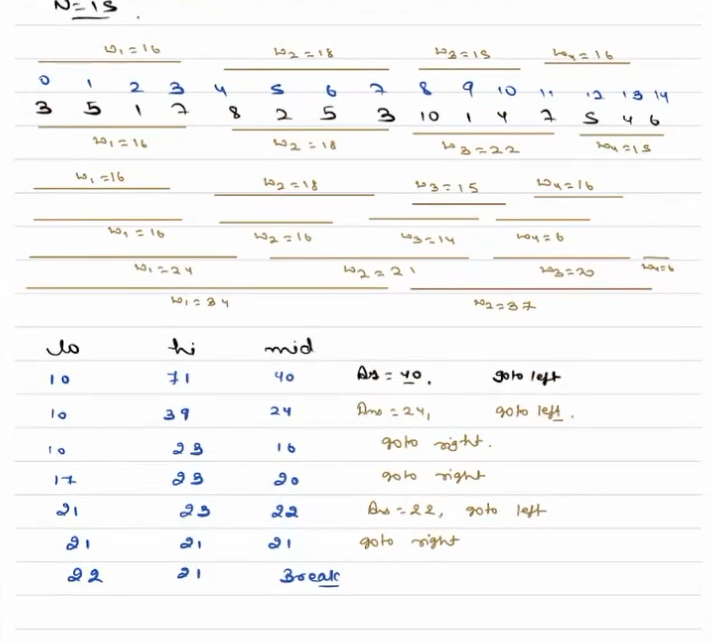 N=15
w1=16 w2=18 w3=15 w4=16
0 1 2 3 4 5 6 7 8 9 10 11 12 13 14
3 5 1 7 8 2 5 3 10 1 4 7 5 4 6
w1=16 w2=18 w3=22 w4=15
w1=16 w2=18 w3=15 w4=16
w1=16 w2=16 w3=14 w4=6
w1=24 w2=21 w3=20 w4=6
w1=34 w2=37
lo hi mid
10 71 40 Ans=40. goto left
10 39 24 Ans=24, goto left.
10 23 16 goto right.
17 23 20 goto right
21 23 22 Ans=22, goto left
21 21 21 goto right
22 21 Break